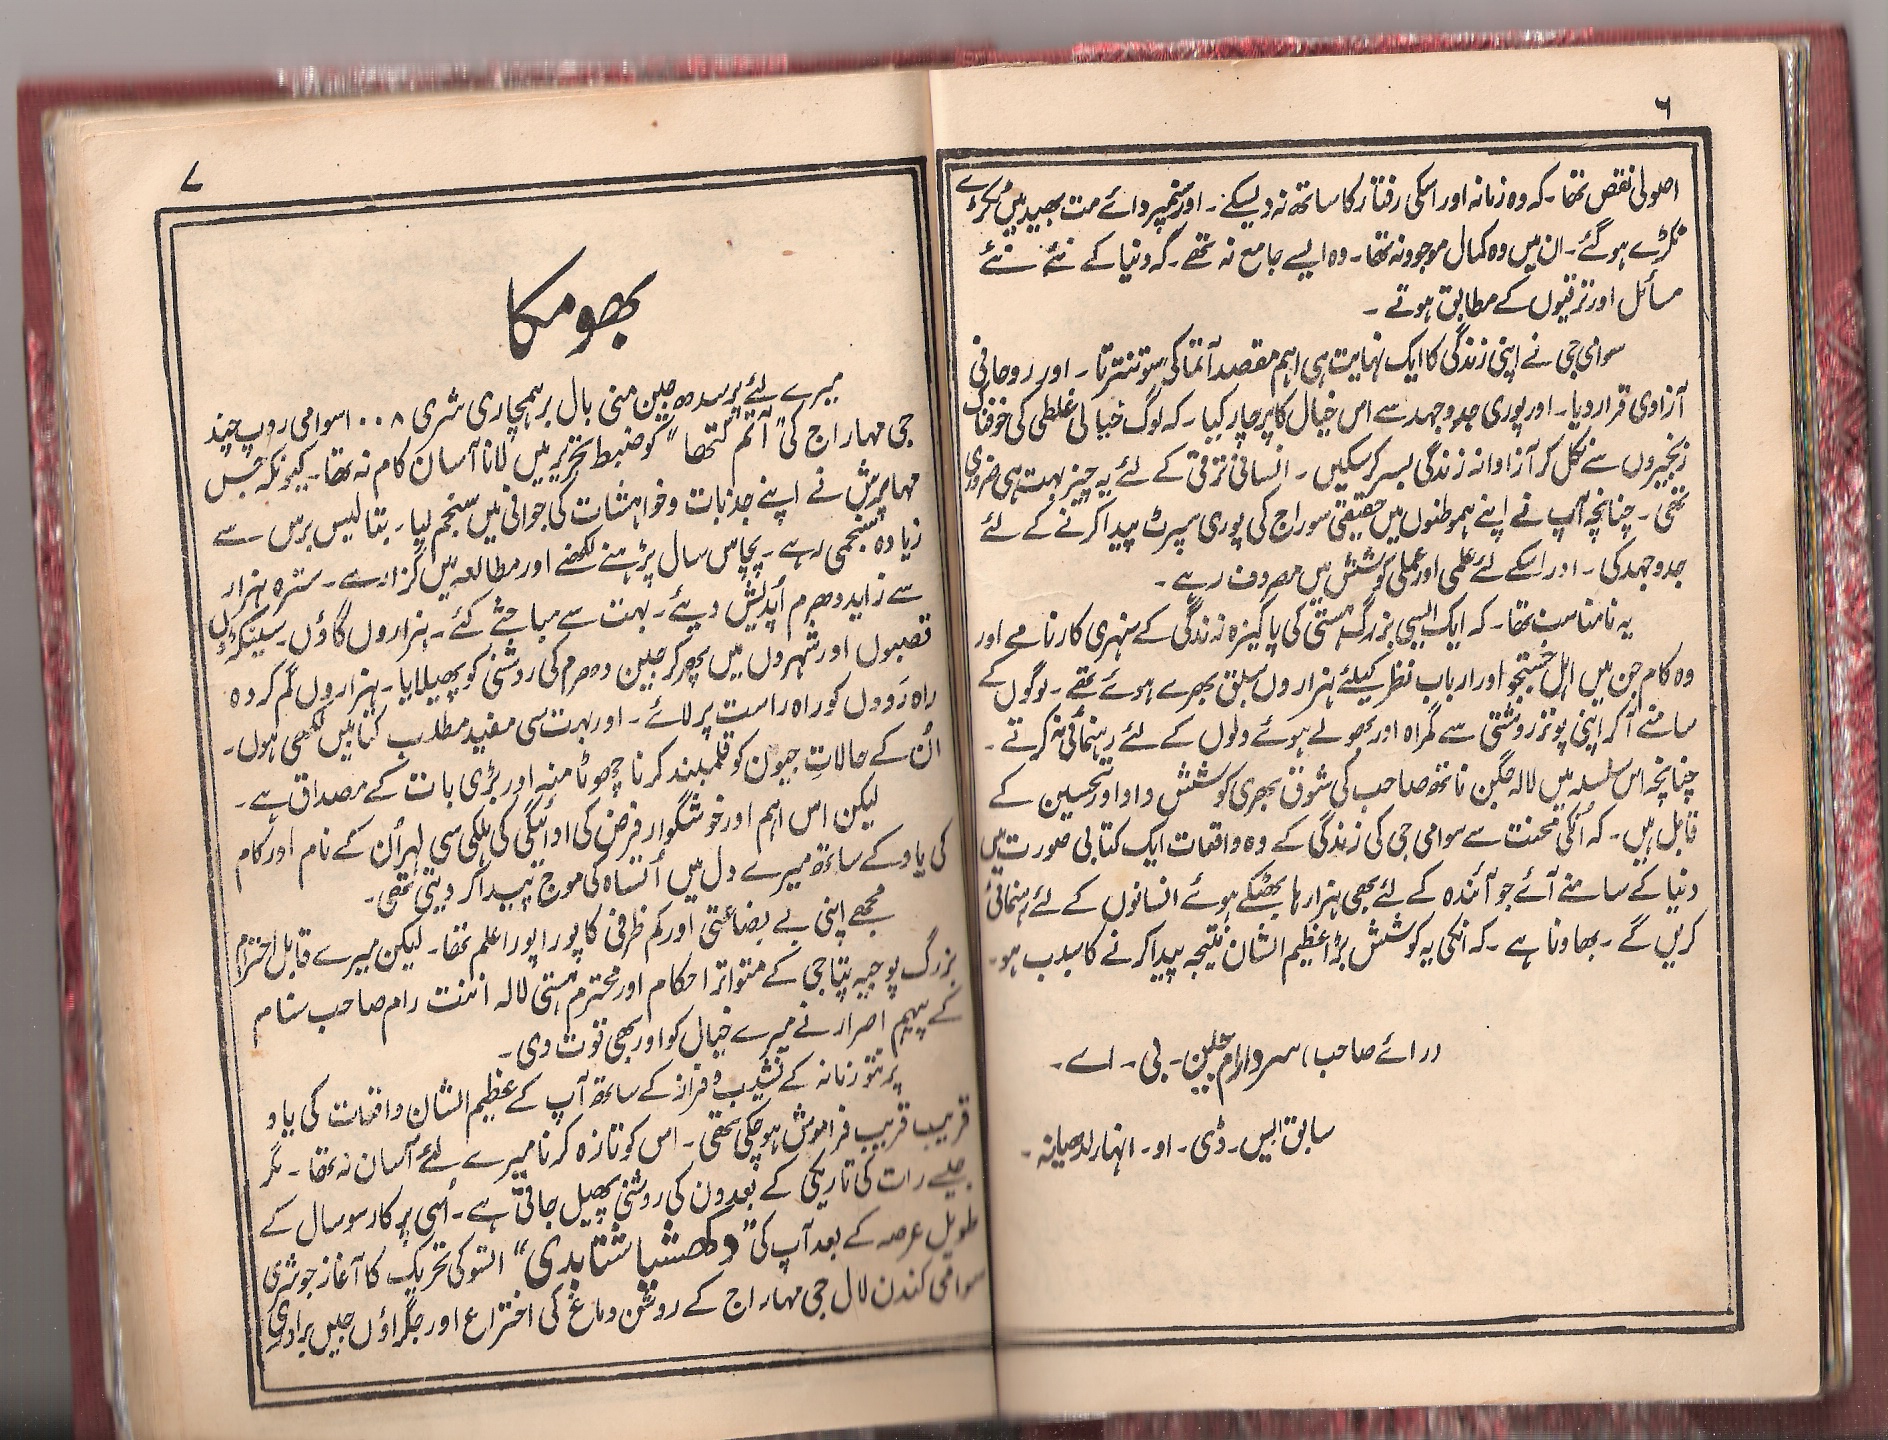 ۶
اصولی نقص تھا۔ کہ وہ زمانہ اور اسکی رفتار کا ساتھ نہ دیسکے۔ اور سمپردائے مت بھید میں ٹکڑے
ٹکڑے ہو گئے۔ ان میں وہ کمال موجود نہ تھا۔ وہ ایسے جامع نہ تھے۔ کہ دنیا کے نئے نئے
مسائل اور ترقیوں کے مطابق ہوتے۔
سوامی جی نے اپنی زندگی کا ایک نہایت ہی اہم مقصد آتما کی سوتنترتا۔ اور روحانی
آزادی قرار دیا۔ اور پوری جدوجہد سے اس خیال کا پرچار کیا۔ کہ لوگ خیالی غلطی کی خوفناک
زنجیروں سے نکل کر آزادانہ زندگی بسر کر سکیں۔ انسانی ترقی کے لئے یہ چیز بہت ہی ضروری
تھی۔ چنانچہ آپ نے اپنے ہموطنوں میں حقیقی سوراج کی پوری سپرٹ پیدا کرنے کے لئے
جدوجہد کی۔ اور اسکے لئے علمی اور عملی کوشش میں مصروف رہے۔
یہ نامناسب تھا۔ کہ ایک ایسی بزرگ ہستی کی پاکیزہ زندگی کے سنہری کارنامے اور
وہ کام جن میں اہل جستجو اور ارباب نظر کیلئے ہزاروں سبق بھرے ہوئے تھے۔ لوگوں کے
سامنے آ کر اپنی پوتر روشنی سے گمراہ اور بھولے ہوئے دلوں کے لئے رہنمائی نہ کرتے۔
چنانچہ اس سلسلہ میں لالہ جگن ناتھ صاحب کی شوق بھری کوشش داد اور تحسین کے
قابل ہیں۔ کہ اُنکی محنت سے سوامی جی کی زندگی کے وہ واقعات ایک کتابی صورت میں
دنیا کے سامنے آئے جو آئندہ کے لئے بھی ہزارہا بھٹکے ہوئے انسانوں کے لئے رہنمائی
کریں گے۔ بھاونا ہے۔ کہ انکی یہ کوشش بڑا عظیم الشان نتیجہ پیدا کرنے کا سبب ہو۔
(رائے صاحب) سردارام جین۔ بی۔ اے۔
سابق ایس۔ ڈی۔ او۔ انہار لدھیانہ۔
۷
بھومکا
میرے لئے پرسدھ جین منی بال برہمچاری شری ۱۰۰۸ سوامی روپ چند
جی مہاراج کی "آتم کتھا" کو ضبط تحریر میں لانا آسان کام نہ تھا۔ کیونکہ جس
مہاپرش نے اپنے جذبات و خواہشات کی جوانی میں سنجم لیا۔ بتالیس برس سے
زیادہ سنجمی رہے۔ پچاس سال پڑھنے لکھنے اور مطالعہ میں گزارے۔ سترہ ہزار
سے زاید دھرم اُپدیش دیئے۔ بہت سے مباحثے کئے۔ ہزاروں گاؤں۔ سینکڑوں
قصبوں اور شہروں میں پھر کر جین دھرم کی روشنی کو پھیلایا۔ ہزاروں گم کردہ
راہ رَووں کو راہ راست پر لائے۔ اور بہت سی مفید مطلب کتابیں لکھی ہوں۔
اُن کے حالاتِ جیون کو قلمبند کرنا چھوٹا منہ اور بڑی بات کے مصداق ہے۔
لیکن اس اہم اور خوشگوار فرض کی ادائیگی کی ہلکی سی لہر اُن کے نام اور کام
کی یاد کے ساتھ میرے دل میں اُتساہ کی موج پیدا کر دیتی تھی۔
مجھے اپنی بے بضاعتی اور کم ظرفی کا پورا پورا علم تھا۔ لیکن میرے قابل احترام
بزرگ پوجیہ پتا جی کے متواتر احکام اور محترم ہستی لالہ اننت رام صاحب سنام
کے پیہم اصرار نے میرے خیال کو اور بھی قوت دی۔
پرنتو زمانہ کے نشیب و فراز کے ساتھ آپ کے عظیم الشان واقعات کی یاد
قریب قریب فراموش ہو چکی تھی۔ اس کو تازہ کرنا میرے لئے آسان نہ تھا۔ مگر
جیسے رات کی تاریکی کے بعد دن کی روشنی پھیل جاتی ہے۔ اُسی پرکار سو سال کے
طویل عرصہ کے بعد آپ کی "دکھشیا شتابدی" اتسو کی تحریک کا آغاز جو شری
سوامی کندن لال جی مہاراج کے روشن دماغ کی اختراع اور جگراؤں جین برادری